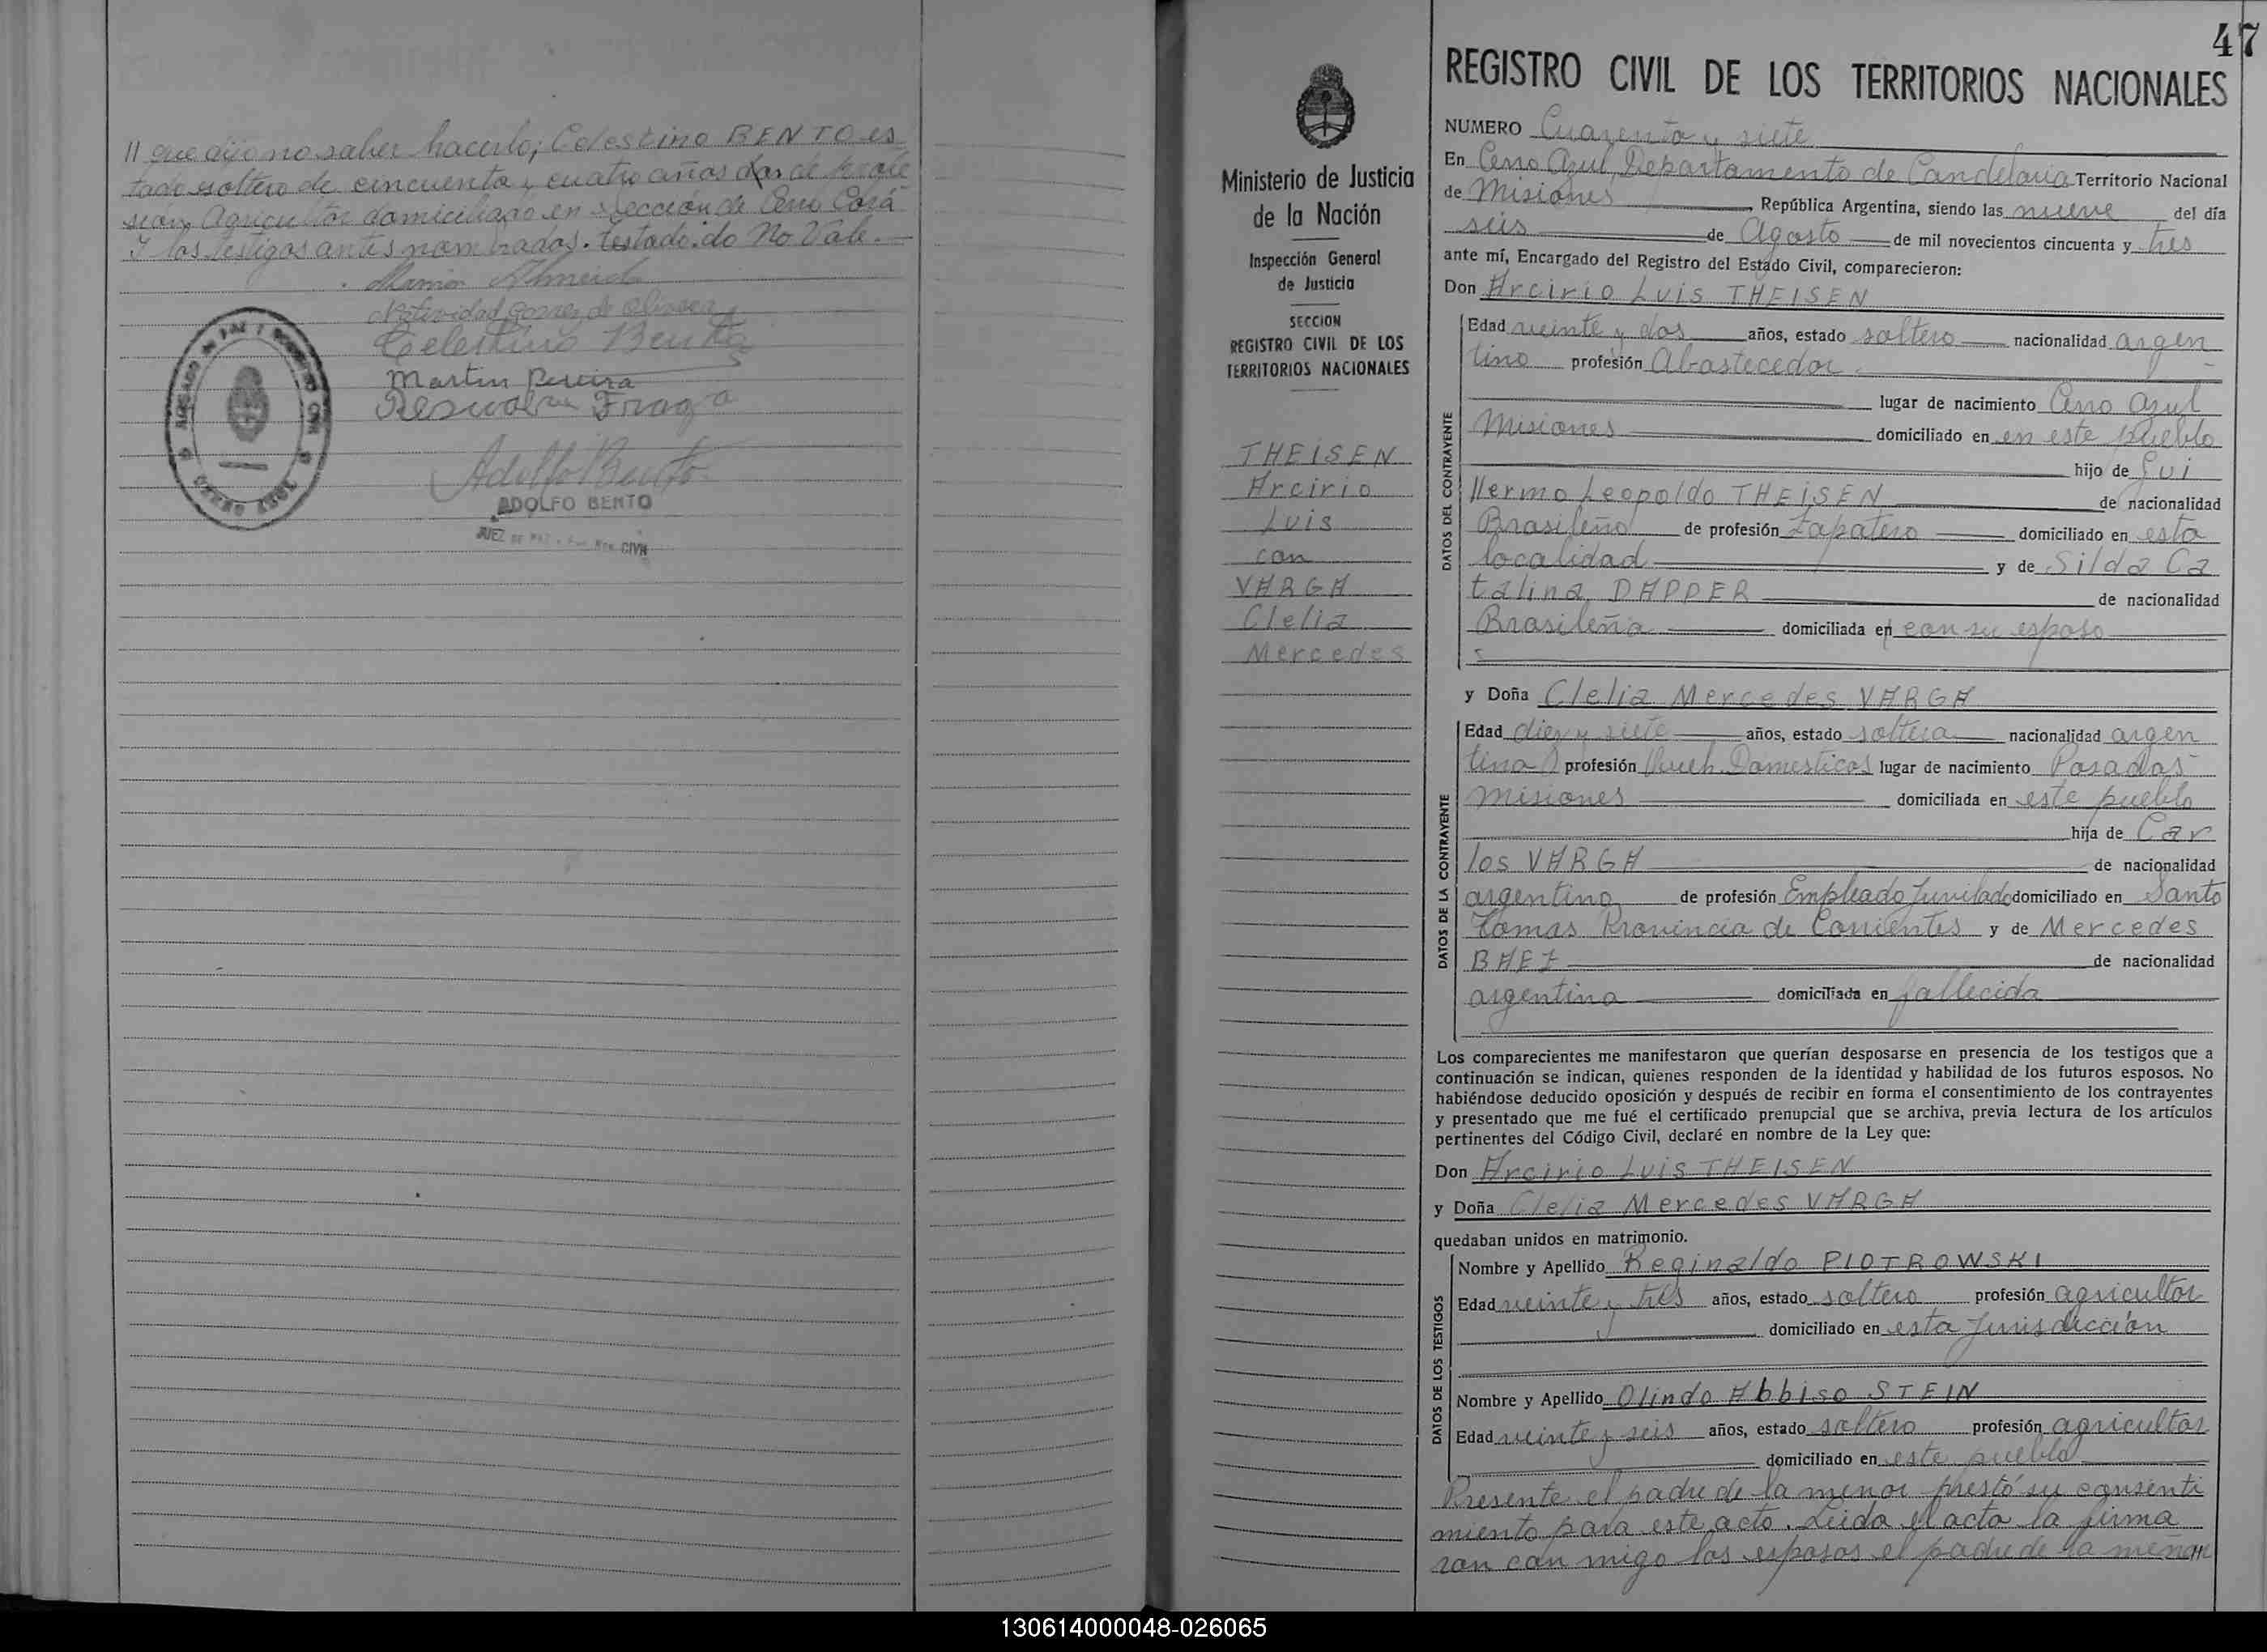 // que dijo no saber hacerlo; Celestino BENTO es
tado soltero de cincuenta y cuatro años de profe
sion Agricultor domiciliado en Sección de Cerro Corá
Y los testigos antes nombrados. testado: do No Vale.
Ramón Almeida
Natividad Gomez de Olivera
Celestino Bento
Martin Pereira
Fraga
Adolfo Bento
ADOLFO BENTO
JUEZ DE PAZ CIVIL
47
REGISTRO CIVIL DE LOS TERRITORIOS NACIONALES
Ministerio de Justicia
de la Nación
Inspección General
de Justicia
SECCION
REGISTRO CIVIL DE LOS
TERRITORIOS NACIONALES
THEISEN
Arcirio
Luis
con
VARGA
Clelia
Mercedes
NUMERO Cuarenta y siete
En Cerro Azul, Departamento de Candelaria Territorio Nacional
de Misiones, República Argentina, siendo las nueve del día
seis de Agosto de mil novecientos cincuenta y tres
ante mí, Encargado del Registro del Estado Civil, comparecieron:
Don Arcirio Luis THEISEN
DATOS DEL CONTRAYENTE
Edad veinte y dos años, estado soltero nacionalidad argen
tino profesión Abastecedor
lugar de nacimiento Cerro Azul
Misiones domiciliado en en este pueblo
hijo de Gui
llermo Leopoldo THEISEN de nacionalidad
Brasileño de profesión Zapatero domiciliado en esta
localidad y de Silda Ca
talina DAPPER de nacionalidad
Brasileña domiciliada en con su esposo
y Doña Clelia Mercedes VARGA
DATOS DE LA CONTRAYENTE
Edad diez y siete años, estado soltera nacionalidad argen
tina profesión Queh. Domesticos lugar de nacimiento Posadas
Misiones domiciliada en este pueblo
hija de Car
los VARGA de nacionalidad
argentino de profesión Empleado Juvilado domiciliado en Santo
Tomas Provincia de Corrientes y de Mercedes
BAEZ de nacionalidad
argentina domiciliada en fallecida
Los comparecientes me manifestaron que querían desposarse en presencia de los testigos que a
continuación se indican, quienes responden de la identidad y habilidad de los futuros esposos. No
habiéndose deducido oposición y después de recibir en forma el consentimiento de los contrayentes
y presentado que me fué el certificado prenupcial que se archiva, previa lectura de los artículos
pertinentes del Código Civil, declaré en nombre de la Ley que:
Don Arcirio Luis THEISEN
y Doña Clelia Mercedes VARGA
quedaban unidos en matrimonio.
DATOS DE LOS TESTIGOS
Nombre y Apellido Reginaldo PIOTROWSKI
Edad veinte y tres años, estado soltero profesión agricultor
domiciliado en esta Jurisdicción
Nombre y Apellido Olindo Abbiso STEIN
Edad veinte y seis años, estado soltero profesión agricultor
domiciliado en este pueblo
Presente el padre de la menor prestó su consenti
miento para este acto. Leida el acta la firma
ron con migo los esposos el padre de la menor //
130614000048-026065